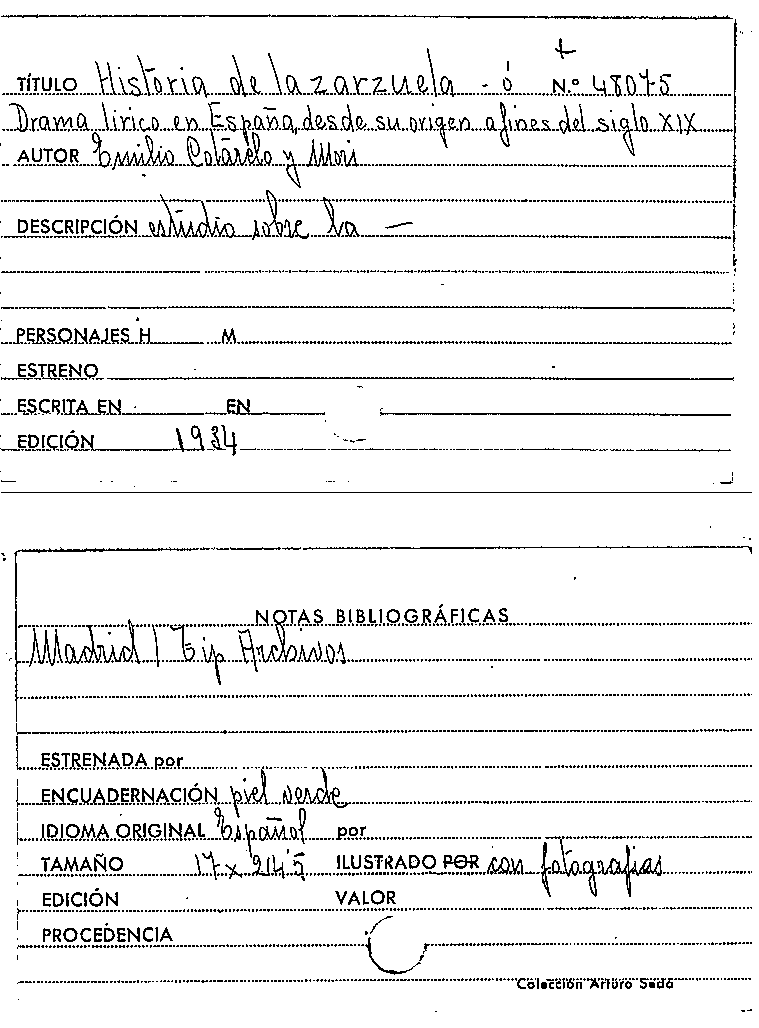 +
TÍTULO Historia de la zarzuela - ó N.º 48075
Drama lírico en España, desde su origen a fines del siglo XIX
AUTOR Emilio Cotarelo y Mori
DESCRIPCIÓN estudio sobre la —
PERSONAJES H M
ESTRENO
ESCRITA EN EN
EDICIÓN 1934
NOTAS BIBLIOGRÁFICAS
Madrid / Tip Archivos
ESTRENADA por
ENCUADERNACIÓN piel verde
IDIOMA ORIGINAL Español por
TAMAÑO 17 x 24'5 ILUSTRADO POR con fotografias
EDICIÓN VALOR
PROCEDENCIA
Colección Arturo Sedó